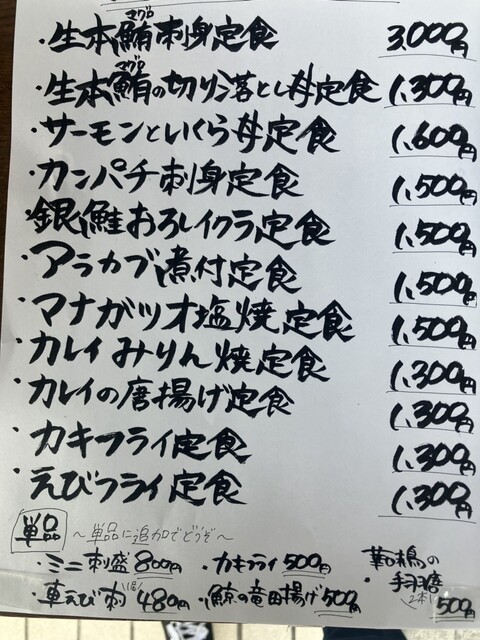 ・生本鮪刺身定食 3,000円
マグロ
・生本鮪の切り落とし丼定食 1,300円
マグロ
・サーモンといくら丼定食 1,600円
・カンパチ刺身定食 1,500円
・銀鮭おろしイクラ定食 1,500円
・アラカブ煮付定食 1,500円
・マナガツオ塩焼定食 1,500円
・カレイみりん焼定食 1,300円
・カレイの唐揚げ定食 1,300円
・カキフライ定食 1,300円
・えびフライ定食 1,300円
単品 〜単品に追加でどうぞ〜
・ミニ刺盛 800円 ・カキフライ 500円
・車えび刺 480円 ・鯨の竜田揚げ 500円
・手羽唐 2本 500円